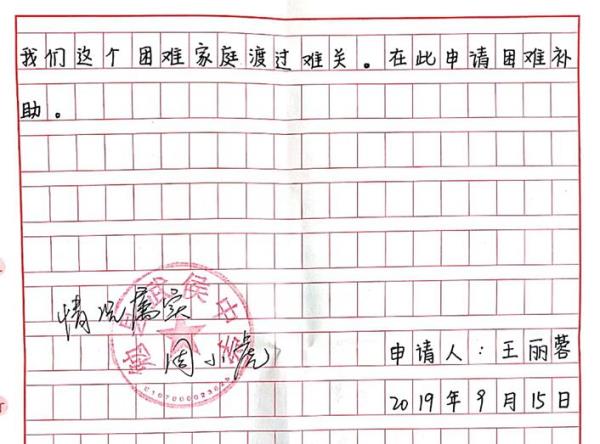 我们这个困难家庭渡过难关。在此申请困难补
助。
情况属实
周小虎
申请人：王丽蓉
2019年9月15日